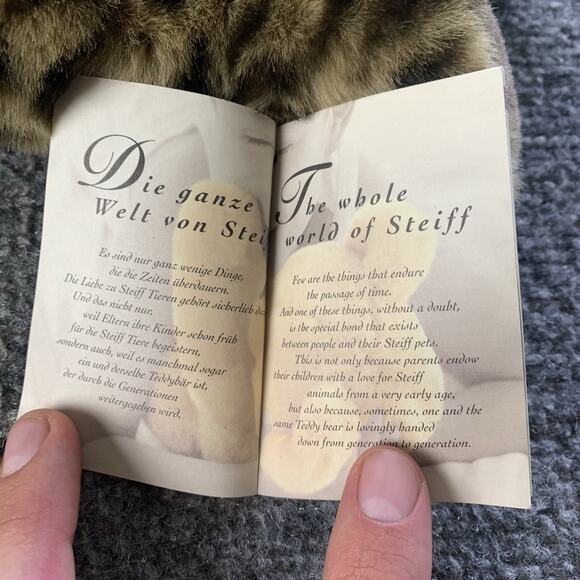 Die ganze
Welt von
Es sind nur ganz wenige Dinge,
die die Zeiten überdauern.
Die Liebe zu Steiff Tieren gehört sicherlich
Und das nicht nur,
weil Eltern ihre Kinder schon früh
für die Steiff Tiere begeistern,
sondern auch, weil es manchmal sogar
ein und derselbe Teddybär ist,
der durch die Generationen
weitergegeben wird.
The whole
world of Steiff
Few are the things that endure
the passage of time.
And one of these things, without a doubt,
is the special bond that exists
between people and their Steiff pets.
This is not only because parents endow
their children with a love for Steiff
animals from a very early age,
but also because, sometimes, one and the
same Teddy bear is lovingly handed
down from generation to generation.